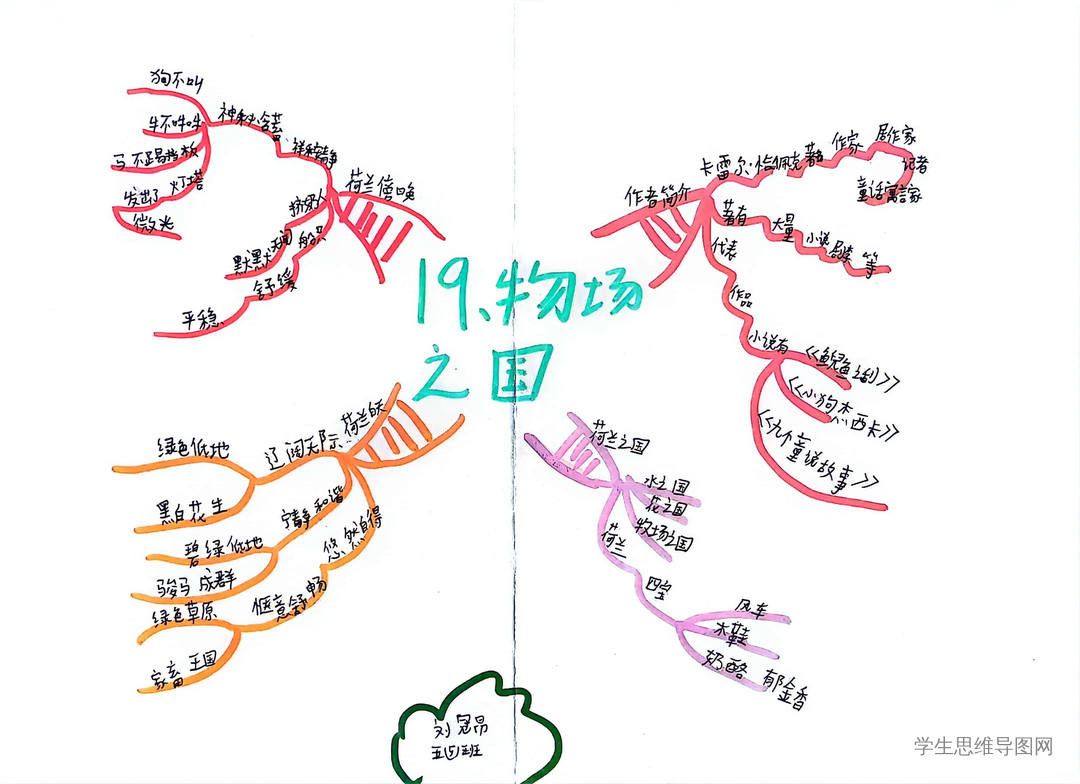 19、牧场
之国
作者简介
卡雷尔·恰佩克
著名
作家
剧作家
记者
童话寓言家
著有
大量
小说
剧本
等
代表
作品
小说有
《鲵鱼之乱》
《小狗杰西卡》
《九个童说故事》
荷兰之国
水之国
花之国
牧场之国
荷兰
四宝
风车
木鞋
奶酪
郁金香
荷兰白天
辽阔无际
绿色低地
黑白花牛
宁静和谐
碧绿低地
骏马成群
悠然自得
惬意舒畅
绿色草原
家畜王国
荷兰傍晚
祥和宁静
神秘
狗不叫
牛不哞叫
马不踢挡板
灯塔
发出了
微光
挤奶人
默默无闻
船只
舒缓
平稳
刘冠昂
五(5)班
学生思维导图网